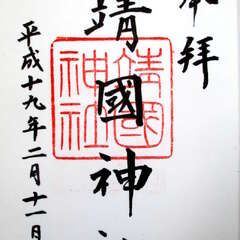 奉拝
靖國神社
靖國
神社
平成十九年二月十一日